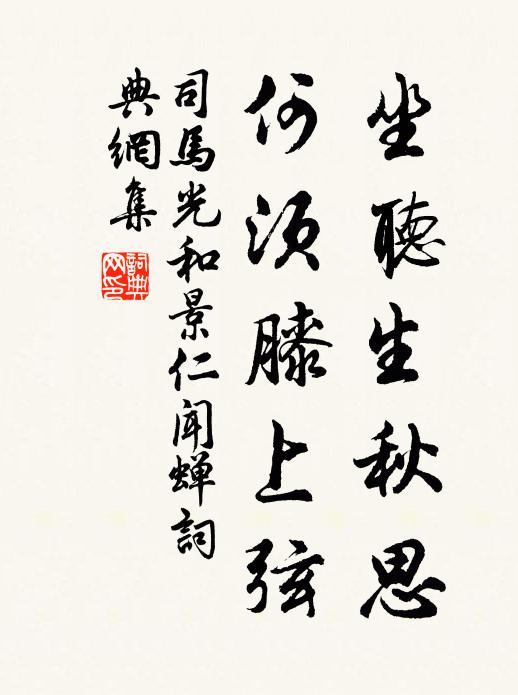 坐聽生秋思
何須膝上弦
司馬光和景仁聞蟬詞
典網集
詞典
网印